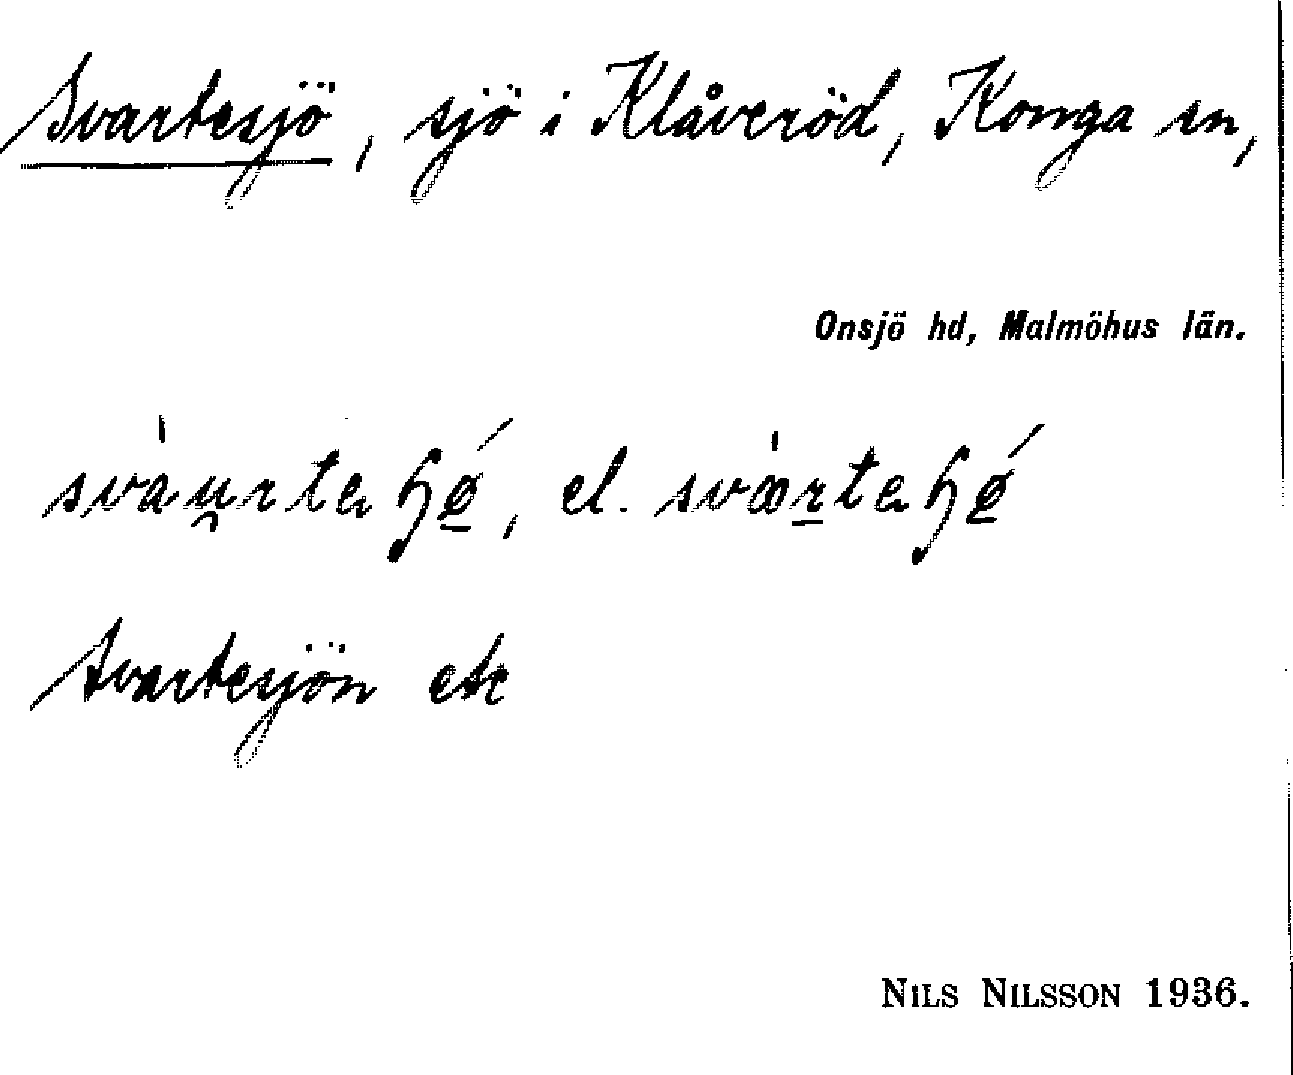 Svartesjö, sjö i Klåveröd, Konga sn,
Onsjö hd, Malmöhus län.
el.
Svartesjön etc
NILS NILSSON 1936.